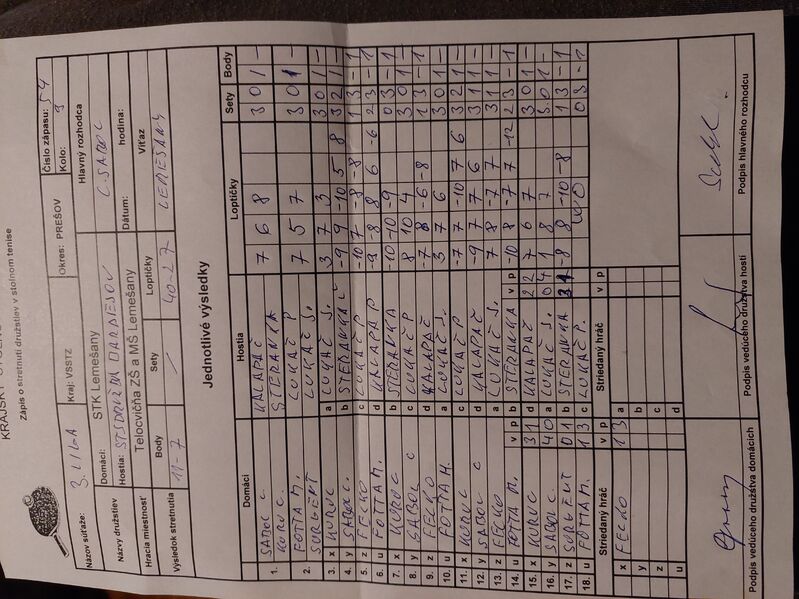 KRAJSKÝ
Zápis o stretnutí družstiev v stolnom tenise
Názov súťaže: 3. LIGA Kraj: VSSTZ Okres: PREŠOV Číslo zápasu: 54
Kolo: 9
Názvy družstiev Domáci: STK Lemešany Hlavný rozhodca
Hostia: C. SABOL
Hracia miestnosť Telocvičňa ZŠ a MŠ Lemešany Dátum: hodina:
Výsledok stretnutia Body Sety Loptičky Víťaz
11-7 / 40-27 LEMEŠANY
Jednotlivé výsledky
Domáci Hostia Loptičky Sety Body
1. SABOL C. KALAPAČ 7 6 8 3 0 1 –
KURUC. STERANKA
2. FOTTA M. LUKAČ P 7 5 7 3 0 1 –
SURGENT LUKAČ S.
3. x KURUC a LUKAČ S. 3 7 3 3 0 1 –
4. y SABOL C. b STERANKA -9 9 -10 5 8 3 2 1 –
5. z FECKO c LUKAČ P -10 7 -8 -8 1 3 – 1
6. u FOTTA M. d KALAPAČ -9 -8 8 6 -6 2 3 – 1
7. x KURUC b STERANKA -10 -10 -9 0 3 – 1
8. y SABOL C c LUKAČ P 8 10 4 3 0 1 –
9. z FECKO d KALAPAČ -7 8 -6 -8 1 3 – 1
10. u FOTTA M. a LUKAČ S. 3 7 6 3 0 1 –
11. x KURUC c LUKAČ P -7 7 -10 7 6 3 2 1 –
12. y SABOL C d KALAPAČ -9 7 7 6 3 1 1 –
13. z FECKO a LUKAČ S. 7 8 -7 7 3 1 1 –
14. u FOTTA M. v p b STERANKA v p -10 8 -7 7 -12 2 3 – 1
15. x KURUC 3 1 d KALAPAČ 2 2 7 6 7 3 0 1 –
16. y SABOL C. 4 0 a LUKAČ S. 0 4 1 8 7 3 0 1 –
17. z SURGENT 0 1 b STERANKA 3 1 -8 8 -10 -8 1 3 – 1
18. u FOTTA M. 1 3 c LUKAČ P. 0 3 – 1
Striedaný hráč v p Striedaný hráč v p
x FECKO 1 3 a
y b
z c
u d
Podpis vedúceho družstva domácich Podpis vedúceho družstva hostí Podpis hlavného rozhodcu